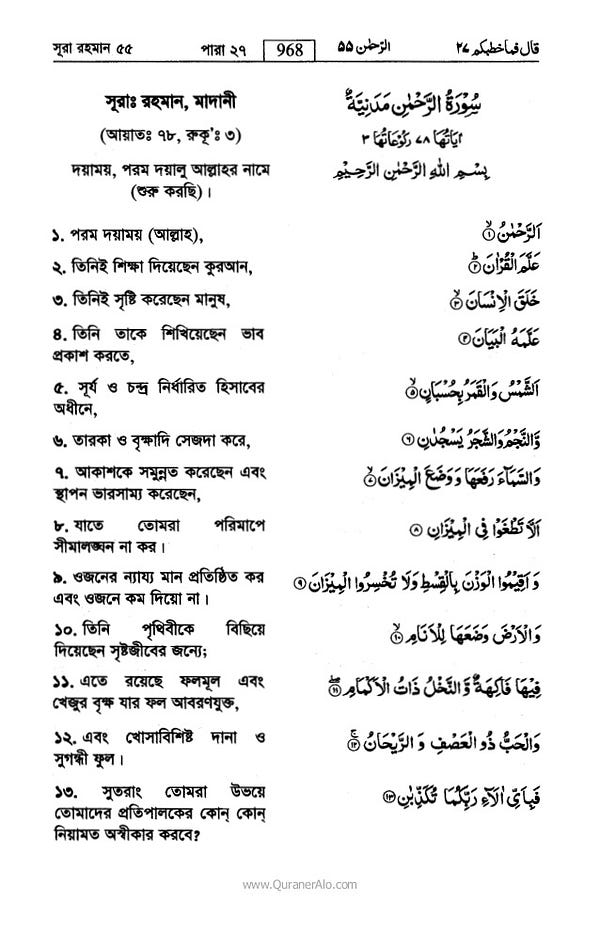 সূরা রহমান ৫৫ পারা ২৭ 968 الرّحمٰن ٥٥ قال فما خطبكم ٢٧
সূরাঃ রহমান, মাদানী
(আয়াতঃ ৭৮, রুকূ'ঃ ৩)
দয়াময়, পরম দয়ালু আল্লাহর নামে
(শুরু করছি)।
১. পরম দয়াময় (আল্লাহ),
২. তিনিই শিক্ষা দিয়েছেন কুরআন,
৩. তিনিই সৃষ্টি করেছেন মানুষ,
৪. তিনি তাকে শিখিয়েছেন ভাব
প্রকাশ করতে,
৫. সূর্য ও চন্দ্র নির্ধারিত হিসাবের
অধীনে,
৬. তারকা ও বৃক্ষাদি সেজদা করে,
৭. আকাশকে সমুন্নত করেছেন এবং
স্থাপন ভারসাম্য করেছেন,
৮. যাতে তোমরা পরিমাপে
সীমালঙ্ঘন না কর।
৯. ওজনের ন্যায্য মান প্রতিষ্ঠিত কর
এবং ওজনে কম দিয়ো না।
১০. তিনি পৃথিবীকে বিছিয়ে
দিয়েছেন সৃষ্টজীবের জন্যে;
১১. এতে রয়েছে ফলমূল এবং
খেজুর বৃক্ষ যার ফল আবরণযুক্ত,
১২. এবং খোসাবিশিষ্ট দানা ও
সুগন্ধী ফুল।
১৩. সুতরাং তোমরা উভয়ে
তোমাদের প্রতিপালকের কোন্ কোন্
নিয়ামত অস্বীকার করবে?
سُوْرَةُ الرَّحْمٰنِ مَدَنِيَّةٌ
اٰيَاتُهَا ٧٨ رُكُوْعَاتُهَا ٣
بِسْمِ اللهِ الرَّحْمٰنِ الرَّحِيْمِ
اَلرَّحْمٰنُ ۙ﴿١﴾
عَلَّمَ الْقُرْاٰنَ ؕ﴿٢﴾
خَلَقَ الْاِنْسَانَ ۙ﴿٣﴾
عَلَّمَهُ الْبَيَانَ ﴿٤﴾
اَلشَّمْسُ وَالْقَمَرُ بِحُسْبَانٍ ۙ﴿٥﴾
وَّالنَّجْمُ وَالشَّجَرُ يَسْجُدٰنِ ﴿٦﴾
وَالسَّمَآءَ رَفَعَهَا وَوَضَعَ الْمِيْزَانَ ۙ﴿٧﴾
اَلَّا تَطْغَوْا فِى الْمِيْزَانِ ﴿٨﴾
وَاَقِيْمُوا الْوَزْنَ بِالْقِسْطِ وَلَا تُخْسِرُوا الْمِيْزَانَ ﴿٩﴾
وَالْاَرْضَ وَضَعَهَا لِلْاَنَامِ ۙ﴿١٠﴾
فِيْهَا فَاكِهَةٌ وَّالنَّخْلُ ذَاتُ الْاَكْمَامِ ﴿١١﴾
وَالْحَبُّ ذُو الْعَصْفِ وَالرَّيْحَانُ ۚ﴿١٢﴾
فَبِاَىِّ اٰلَآءِ رَبِّكُمَا تُكَذِّبٰنِ ﴿١٣﴾
www.QuranerAlo.com